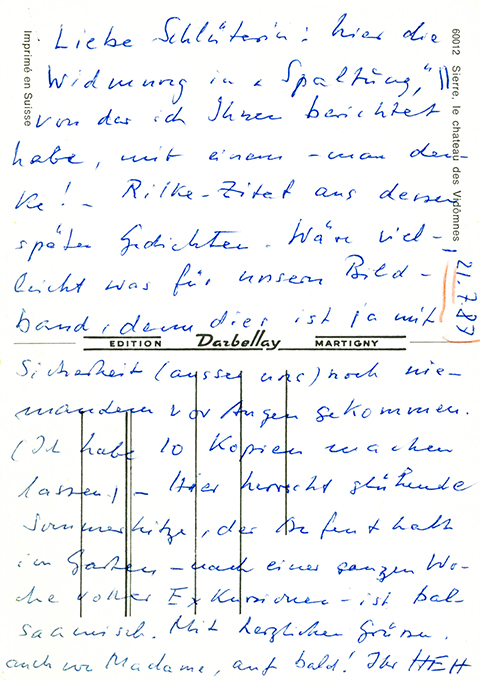 Liebe Schlüterin: hier die
Widmung in „Spaltung“,
von der ich Ihnen berichtet
habe, mit einem – man den-
ke! – Rilke-Zitat aus dessen
späten Gedichten. Wäre viel-
leicht was für unsern Bild-
band, denn dies ist ja mit
EDITION Darbellay MARTIGNY
Sicherheit (ausser uns) noch nie-
mandem vor Augen gekommen.
(Ich habe 10 Kopien machen
lassen.) – Hier herrscht glühende
Sommerhitze, der Aufenthalt
im Garten – nach einer ganzen Wo-
che voller Exkursionen – ist bal-
samisch. Mit herzlichen Grüssen,
auch von Madame, auf bald! Ihr HEH
60012 Sierre, le chateau des Vidômnes
21.7.87
Imprimé en Suisse